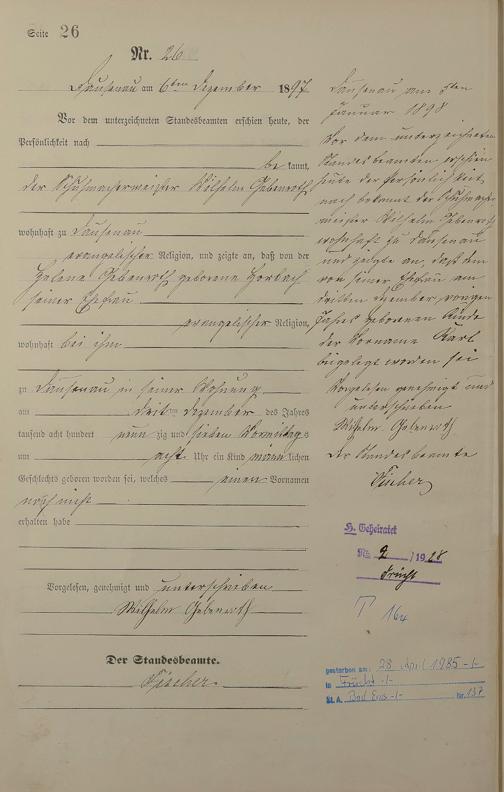 Seite 26
Nr. 26
Dausenau am 6ten Dezember 1897
Vor dem unterzeichneten Standesbeamten erschien heute, der
Persönlichkeit nach
be kannt,
der Schuhmachermeister Wilhelm Gebenroth
wohnhaft zu Dausenau
evangelischer Religion, und zeigte an, daß von der
Helene Gebenroth geborene Horbach
seiner Ehefrau
evangelischer Religion,
wohnhaft bei ihm
zu Dausenau in seiner Wohnung
am dritten Dezember des Jahres
tausend acht hundert neun zig und sieben Vormittags
um acht Uhr ein Kind männlichen
Geschlechts geboren worden sei, welches einen Vornamen
noch nicht
erhalten habe
Vorgelesen, genehmigt und unterschrieben
Wilhelm Gebenroth
Der Standesbeamte.
Fischer
Dausenau am 5ten
Januar 1898
Vor dem unterzeichneten
Standesbeamten erschien
heute der Persönlichkeit
nach bekannt der Schuhmacher
meister Wilhelm Gebenroth
wohnhaft zu Dausenau
und zeigte an, daß dem
von seiner Ehefrau am
dritten Dezember vorigen
Jahres geborenen Kinde
der Vorname Karl
beigelegt worden sei
Vorgelesen genehmigt und
unterschrieben
Wilhelm Gebenroth
Der Standesbeamte
Fischer
H. Geheiratet
Nr. 2 /1928
Frücht
gestorben am: 28 April 1985 -/-
in Frücht -/-
St.A. Bad Ems -/- Nr. 137